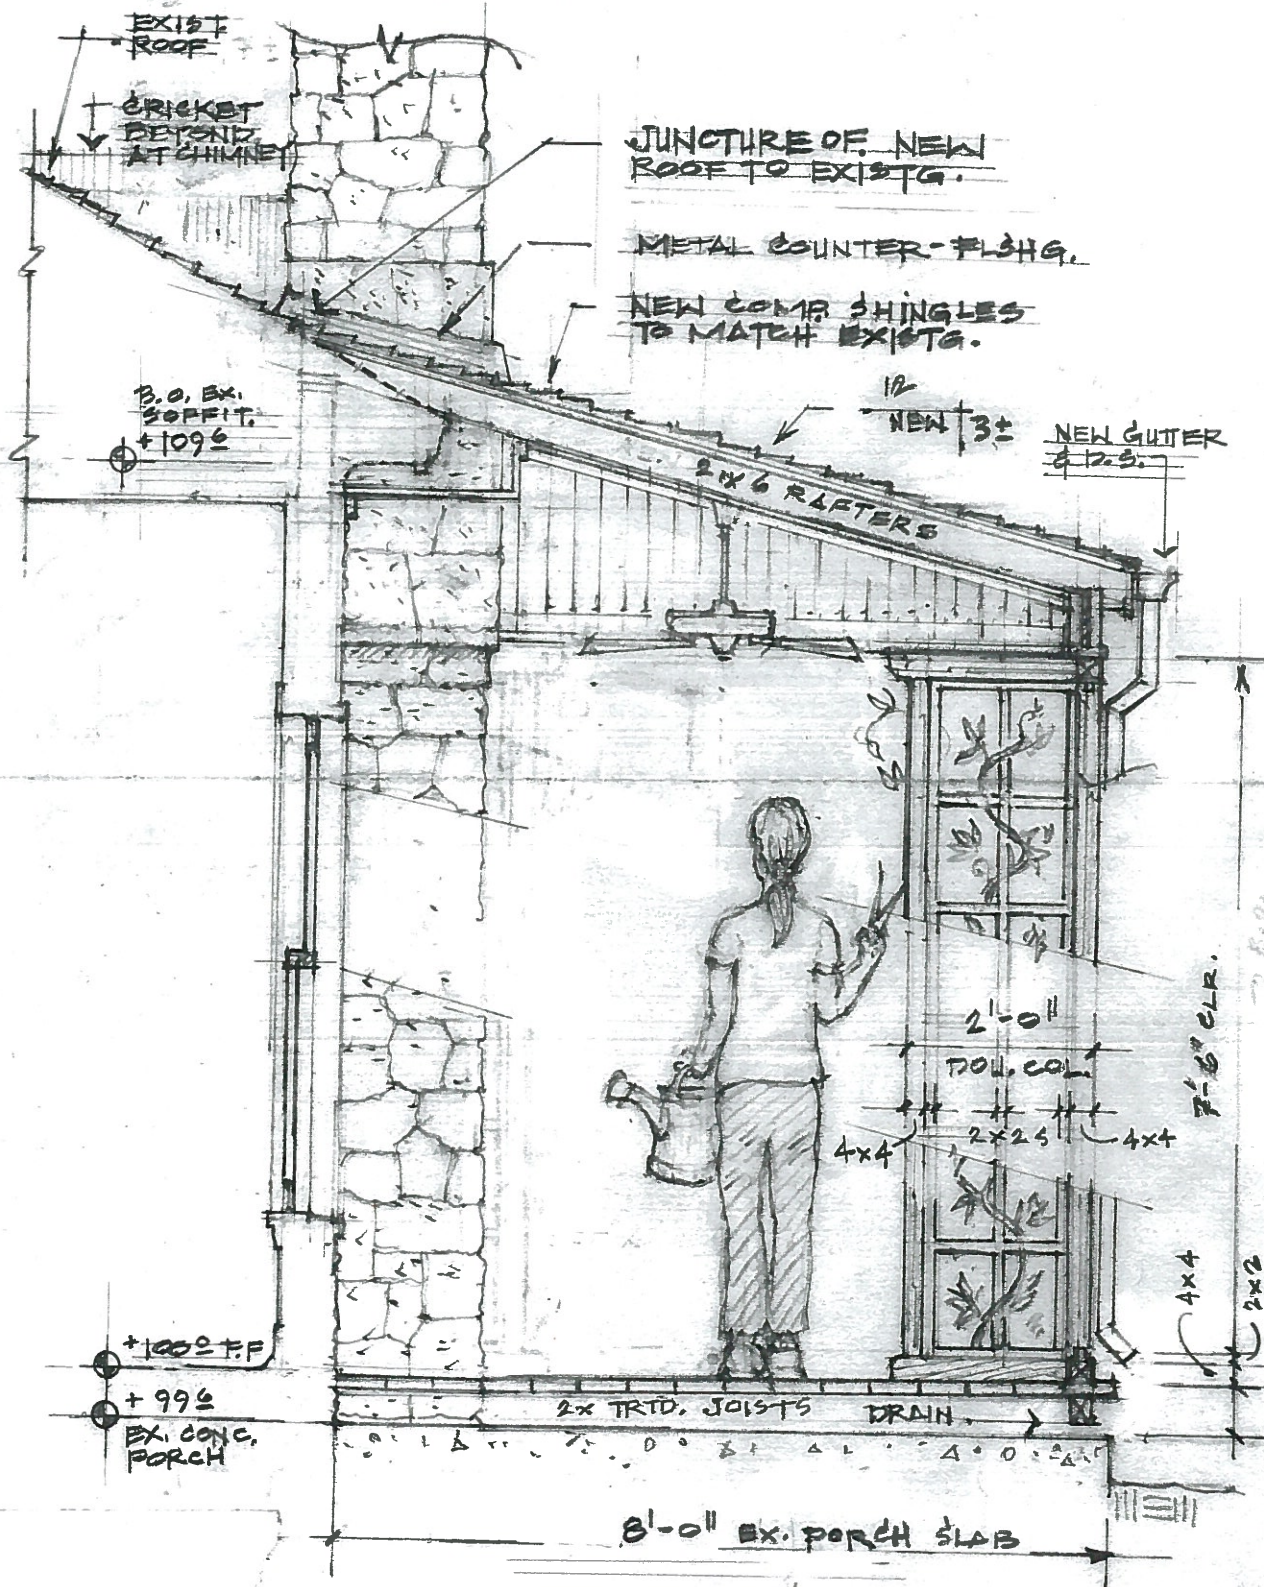 EXIST.
ROOF
CRICKET
BEYOND
AT CHIMNEY
JUNCTURE OF NEW
ROOF TO EXIST'G.
METAL COUNTER-FLSHG.
NEW COMP. SHINGLES
TO MATCH EXIST'G.
12
NEW 3±
NEW GUTTER
& D.S.
B.O. EX.
SOFFIT.
+109⁶
2 x 6 RAFTERS
7'-6" CLR.
2'-0"
DOU. COL.
4x4
2x2s
4x4
4x4
2x2
+100⁰ F.F
+ 99⁶
EX. CONC.
PORCH
2x TRTD. JOISTS
DRAIN.
8'-0" EX. PORCH SLAB